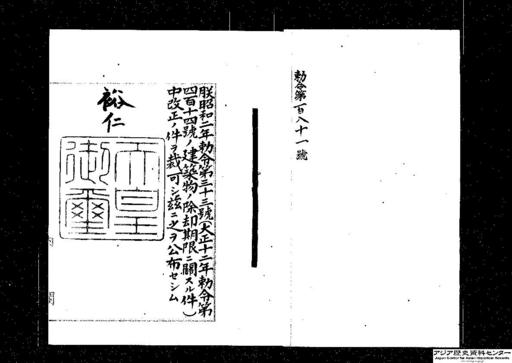 勅令第百八十一號
朕昭和二年勅令第三十三號(大正十二年勅令第
四百十四號ノ建築物ノ除却期限ニ關スル件)
中改正ノ件ヲ裁可シ茲ニ之ヲ公布セシム
裕仁
天皇
御璽
アジア歴史資料センター
Japan Center for Asian Historical Records